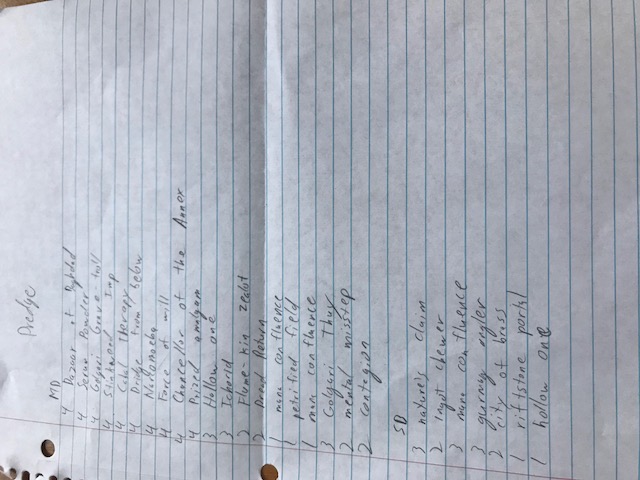 Dredge
MD
4 Bazaar of Baghdad
4 Serum Powder
4 Golgari Grave-troll
4 Stinkweed Imp
4 Cabal Therapy
4 Bridge from below
4 Narcomoeba
4 Force of will
4 Chancellor of the Annex
4 Prized amalgam
3 Hollow one
3 Ichorid
2 Flame-kin zealot
2 Dread Return
1 mana confluence
1 petrified field
1 mana confluence
3 Golgari Thug
2 mental misstep
2 contagion
SB
3 nature's claim
2 Ingot chewer
3 mana confluence
3 gurmag angler
2 city of brass
1 riftstone portal
1 hollow one